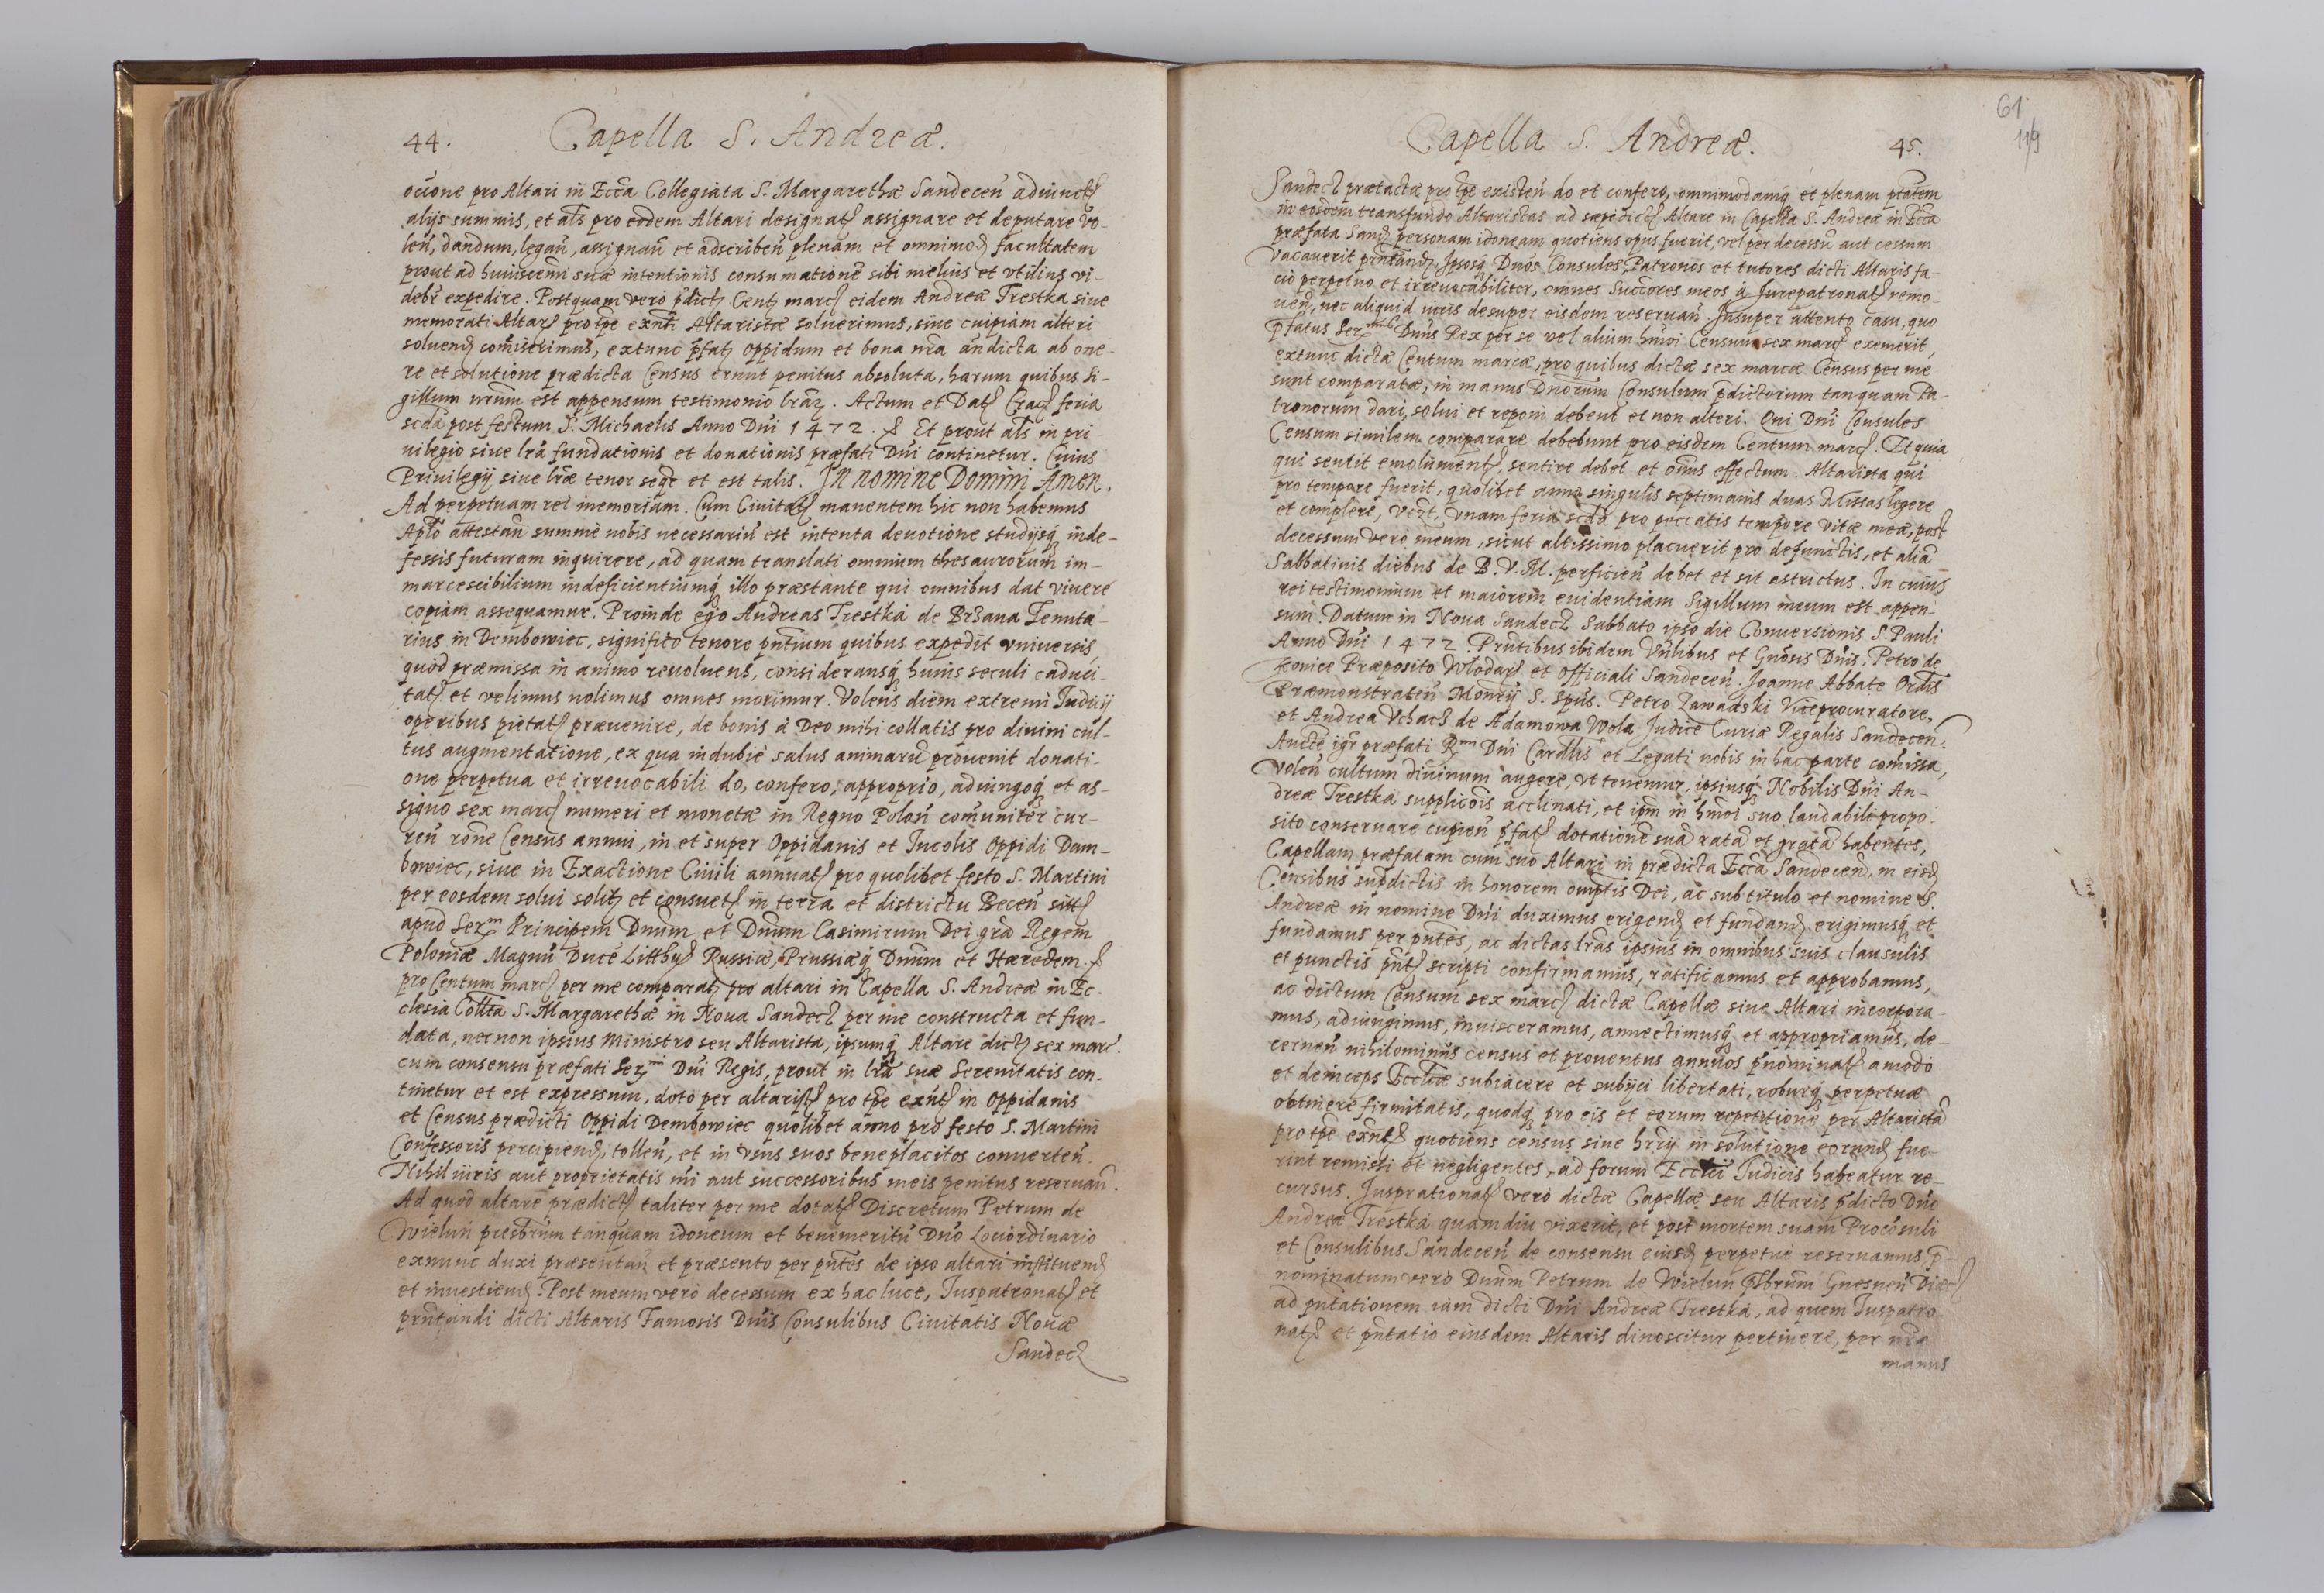 44. Capella S. Andreæ.
oc̄one pro Altari in Ecc̄a Collegiata S. Margarethæ Sandeceñ adiunctꝭ
alijs summis, et al̄s pro eodem Altari designatꝭ assignare et deputare vo-
leñ, dandum, legañ, assignañ et adscribeñ plenam et omnimodꝭ facultatem
prout ad huiuscemi suæ intentionis consumationē sibi melius et vtilius vi-
debr̄ expedire. Postquam verò p̄dictꝭ Centꝭ marcꝭ eidem Andreæ Trestka siue
memorati Altarꝭ pro tp̄e exn̄ti Altaristæ soluerimus, siue cuipiam alteri
soluendꝭ com̄iserimus, extunc p̄fatꝭ oppidum et bona nr̄a andicta ab one-
re et solutione prædicta Census erunt penitus absoluta, harum quibus Si-
gillum nr̄um est appensum testimonio lr̄arꝫ. Actum et Datꝭ Cracꝭ feria
scdā post festum S. Michaelis Anno Dn̄i 1472. Et prout al̄s in pri-
uilegio siue lr̄a fundationis et donationis præfati Dn̄i continetur. Cuius
Priuilegij siue lr̄æ tenor seqr̄ et est talis. In nomine Domini Amen.
Ad perpetuam rei memoriam. Cum Ciuitatꝭ manentem hic non habemus
Ap̄lo attestañ summè nobis necessariū est intenta deuotione studijsqꝫ inde-
fessis futuram inquirere, ad quam translati omnium thesaurorum im-
marcescibilium indeficientiumqꝫ illo præstante qui omnibus dat viuere
copiam assequamur. Proinde ego Andreas Trestka de Brzana Tenuta-
rius in Dembowiec, significo tenore pn̄tium quibus expedit vniuersis
quod præmissa in animo reuoluens, consideransqꝫ huius seculi caduci-
tatꝭ et velimus nolimus omnes morimur. Volens diem extremi Iudicij
operibus pietatꝭ præuenire, de bonis à Deo mihi collatis pro diuini cul-
tus augmentatione, ex qua indubiè salus animarū prouenit donati-
one perpetua et irreuocabili do, confero, approprio, adiungoqꝫ et as-
signo sex marcꝭ numeri et monetæ in Regno Poloñ com̄uniter cur-
reñ rōne Census annui, in et super Oppidanis et Incolis Oppidi Dam-
bowiec, siue in Exactione Ciuili annuatꝭ pro quolibet festo S. Martini
per eosdem solui solitꝭ et consuetꝭ in terra et districtu Beceñ sittꝭ
apud Serᵐ Principem Dn̄um et Dn̄um Casimirum Dei grā Regem
Poloniæ Magnū Ducē Litthuꝭ Russiæ, Prussiæqꝫ Dn̄um et Hæredem.
pro Centum marcꝭ per me comparatꝭ pro altari in Capella S. Andreæ in Ec-
clesia Coll̄ta S. Margarethæ in Noua Sandecꝫ per me constructa et fun-
data, necnon ipsius ministro seu Altarista, ipsumqꝫ Altare dictꝭ sex marc.
cum consensu præfati Serᵐⁱ Dn̄i Regis, prout in lr̄a suæ Serenitatis con-
tinetur et est expressum, doto per altaristꝭ pro tp̄e exn̄tꝭ in Oppidanis
et Census prædicti Oppidi Dembowiec quolibet anno pro festo S. Martini
Confessoris percipiendꝭ, tolleñ, et in vsus suos beneplacitos conuerteñ.
Nihil iuris aut proprietatis mi aut successoribus meis penitus reseruañ.
Ad quod altare prædictꝭ taliter per me dotatꝭ Discretum Petrum de
Wieluñ presb̄rum tanquam idoneum et benemeritū Dn̄o Lociordinario
exnunc duxi præsentañ et præsento per pn̄tes de ipso altari instituendꝭ
et inuestiendꝭ. Post meum verò decessum ex hac luce, Iuspatronatꝭ et
prn̄tandi dicti Altaris Famosis Dn̄is Consulibus Ciuitatis Nouæ
Sandecꝫ
61
119
Capella S. Andreæ. 45.
Sandecꝫ prætactæ pro tp̄e existeñ do et confero, omnimodamqꝫ et plenam ptātem
in eosdem transfundo Altaristas ad sæpedictꝭ Altare in Capella S. Andreæ in Ecc̄a
præfata Sandꝭ personam idoneam quotiens opus fuerit, vel per decessū aut cessum
vacauerit prn̄tandꝭ. Ipsosqꝫ Dn̄os Consules, Patronos et tutores dicti Altaris fa-
cio perpetuo et irreuocabiliter, omnes Succ̄ores meos à Iurepatronatꝭ remo-
ueñ, nec aliquid iuris desuper eisdem reseruañ. Insuper attento casu, quo
p̄fatus Serᵐᵘˢ Dn̄us Rex per se vel alium hm̄oi Censum sex marcꝭ exemerit,
extunc dictæ Centum marcæ, pro quibus dictæ sex marcæ Census per me
sunt comparatæ, in manus Dn̄orum Consulum p̄dictorum tanquam Pa-
tronorum dari, solui et reponi debent et non alteri. Qui Dn̄i Consules
Censum similem comparare debebunt pro eisdem Centum marcꝭ. Et quia
qui sentit emolumentꝭ, sentire debet et onus effectum. Altarista qui
pro tempore fuerit, quolibet anno singulis septimanis duas Missas legere
et complere, vczt. vnam feria scdā pro peccatis tempore vitæ meæ, post
decessum verò meum, sicut altissimo placuerit pro defunctis, et aliā
Sabbatinis diebus de B.V.M. perficieñ debet et sit astrictus. In cuius
rei testimonium et maiorem euidentiam Sigillum meum est appen-
sum. Datum in Noua Sandecꝫ Sabbato ipso die Conuersionis S. Pauli
Anno Dn̄i 1472. Prn̄tibus ibidem Vn̄libus et Gnōsis Dn̄is, Petro de
konice Præposito Wlodarꝭ et Officiali Sandeceñ. Joanne Abbate Ordis
Præmonstrateñ Monrij S. Spūs. Petro Zawadski Viceprocuratore,
et Andrea Vchacꝫ de Adamowa Wola Judice Curiæ Regalis Sandeceñ.
Aucte igr̄ præfati Rᵐⁱ Dn̄i Card̄lis et Legati nobis in hac parte com̄issa,
Voleñ cultum diuinum augere, vt tenemur, ipsiusqꝫ Nobilis Dn̄i An-
dreæ Trestka supplicōis acclinati, et ip̄m in hm̄oi suo laudabili propo-
sito conseruare cupieñ p̄fatꝭ dotationē suā ratā et gratā habentes,
Capellam præfatam cum suo Altari in prædicta Ecc̄a Sandeceñ, in eisdꝭ
Censibus sup̄dictis in honorem om̄ptis Dei, ac sub titulo et nomine S.
Andreæ in nomine Dn̄i duximus erigendꝭ et fundandꝭ erigimusqꝫ et
fundamus per pn̄tes, ac dictas lr̄as ipsius in omnibus suis clausulis
et punctis pn̄tꝭ scripti confirmamus, ratificamus et approbamus,
ac dictum Censum sex marcꝭ dictæ Capellæ siue Altari incorpora-
mus, adiungimus, inuisceramus, annectimusqꝫ et appropriamus, de-
cerneñ nihilominus census et prouentus annuos p̄nominatꝭ amodo
et deinceps Eccl̄iæ subiacere et subijci libertati, roburqꝫ perpetuæ
obtinere firmitatis, quodqꝫ pro eis et eorum repetitione per Altaristā
pro tp̄e exn̄tꝭ quotiens census siue hr̄ij in solutione eorundꝭ fue-
rint remissi et negligentes, ad forum Eccl̄ii Iudicis habeatur re-
cursus. Iusprationatꝭ verò dictæ Capellæ seu Altaris p̄dicto Dn̄o
Andreæ Trestka quamdiu vixerit, et post mortem suam Procōsuli
et Consulibus Sandeceñ de consensu eiusdꝭ perpetuè reseruamus. p̄-
nominatum verò Dn̄um Petrum de Wieluñ p̄sbrum Gnesneñ Diæcꝭ
ad pn̄tationem iam dicti Dn̄i Andreæ Trestka, ad quem Iuspatro-
natꝭ et pn̄tatio eiusdem Altaris dinoscitur pertinere, per nr̄æ
manus